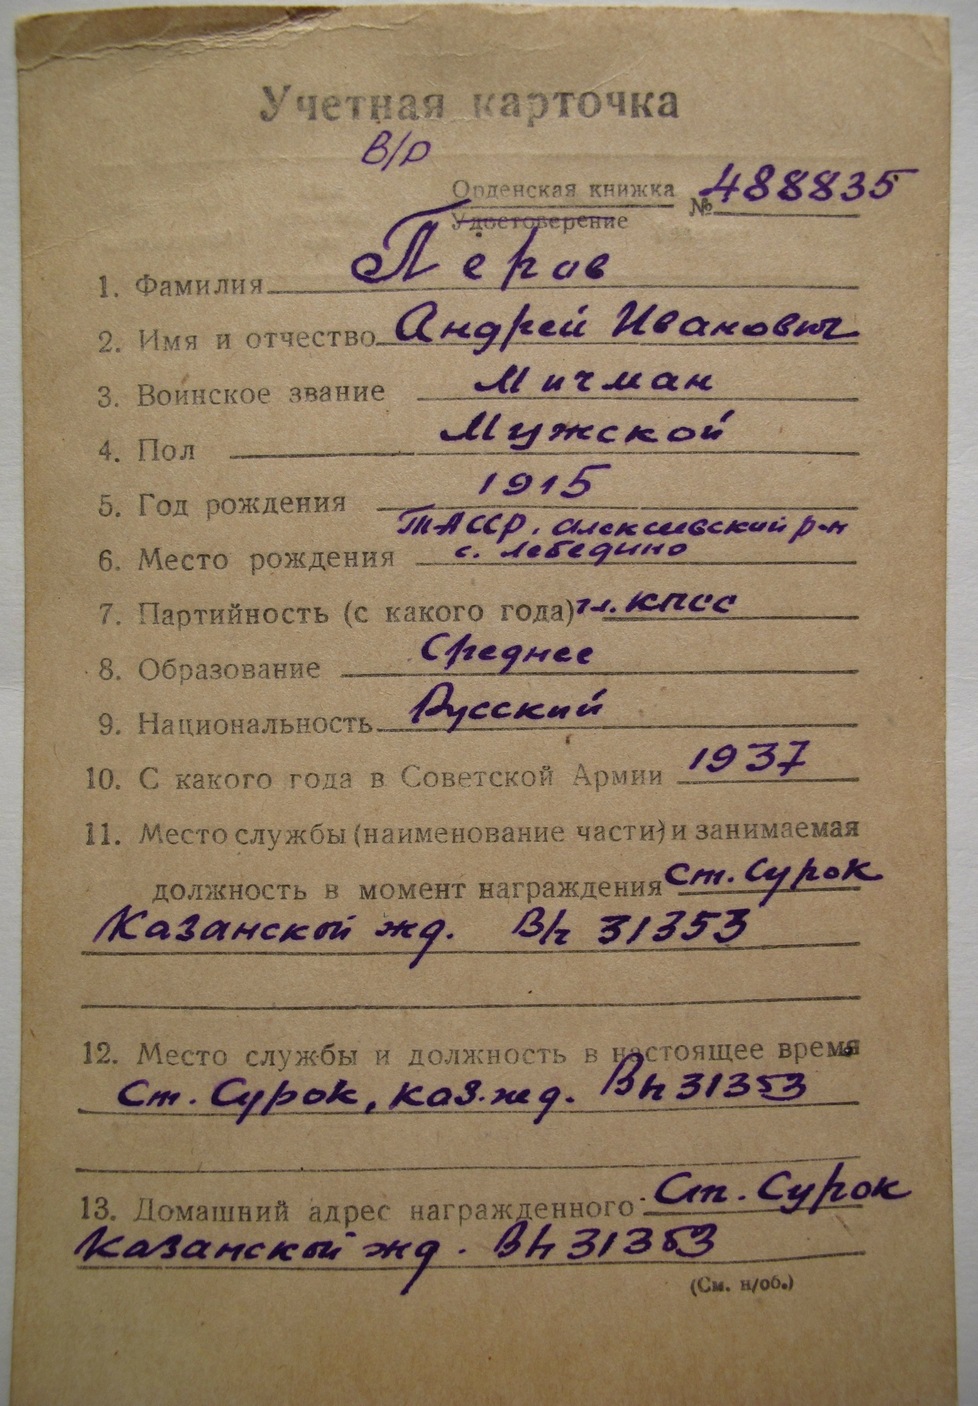 Учетная карточка
В/р
Орденская книжка № 488835
Удостоверение
1. Фамилия Перов
2. Имя и отчество Андрей Иванович
3. Воинское звание Мичман
4. Пол Мужской
5. Год рождения 1915
ТАССР. Алексеевский р-н
6. Место рождения с. Лебедино
7. Партийность (с какого года) чл. КПСС
8. Образование Среднее
9. Национальность Русский
10. С какого года в Советской Армии 1937
11. Место службы (наименование части) и занимаемая
должность в момент награждения ст. Сурок
Казанской жд. В/ч 31353
12. Место службы и должность в настоящее время
Ст. Сурок, каз. жд. В/ч 31353
13. Домашний адрес награжденного Ст. Сурок
Казанской жд. В/ч 31353
(См. н/об.)